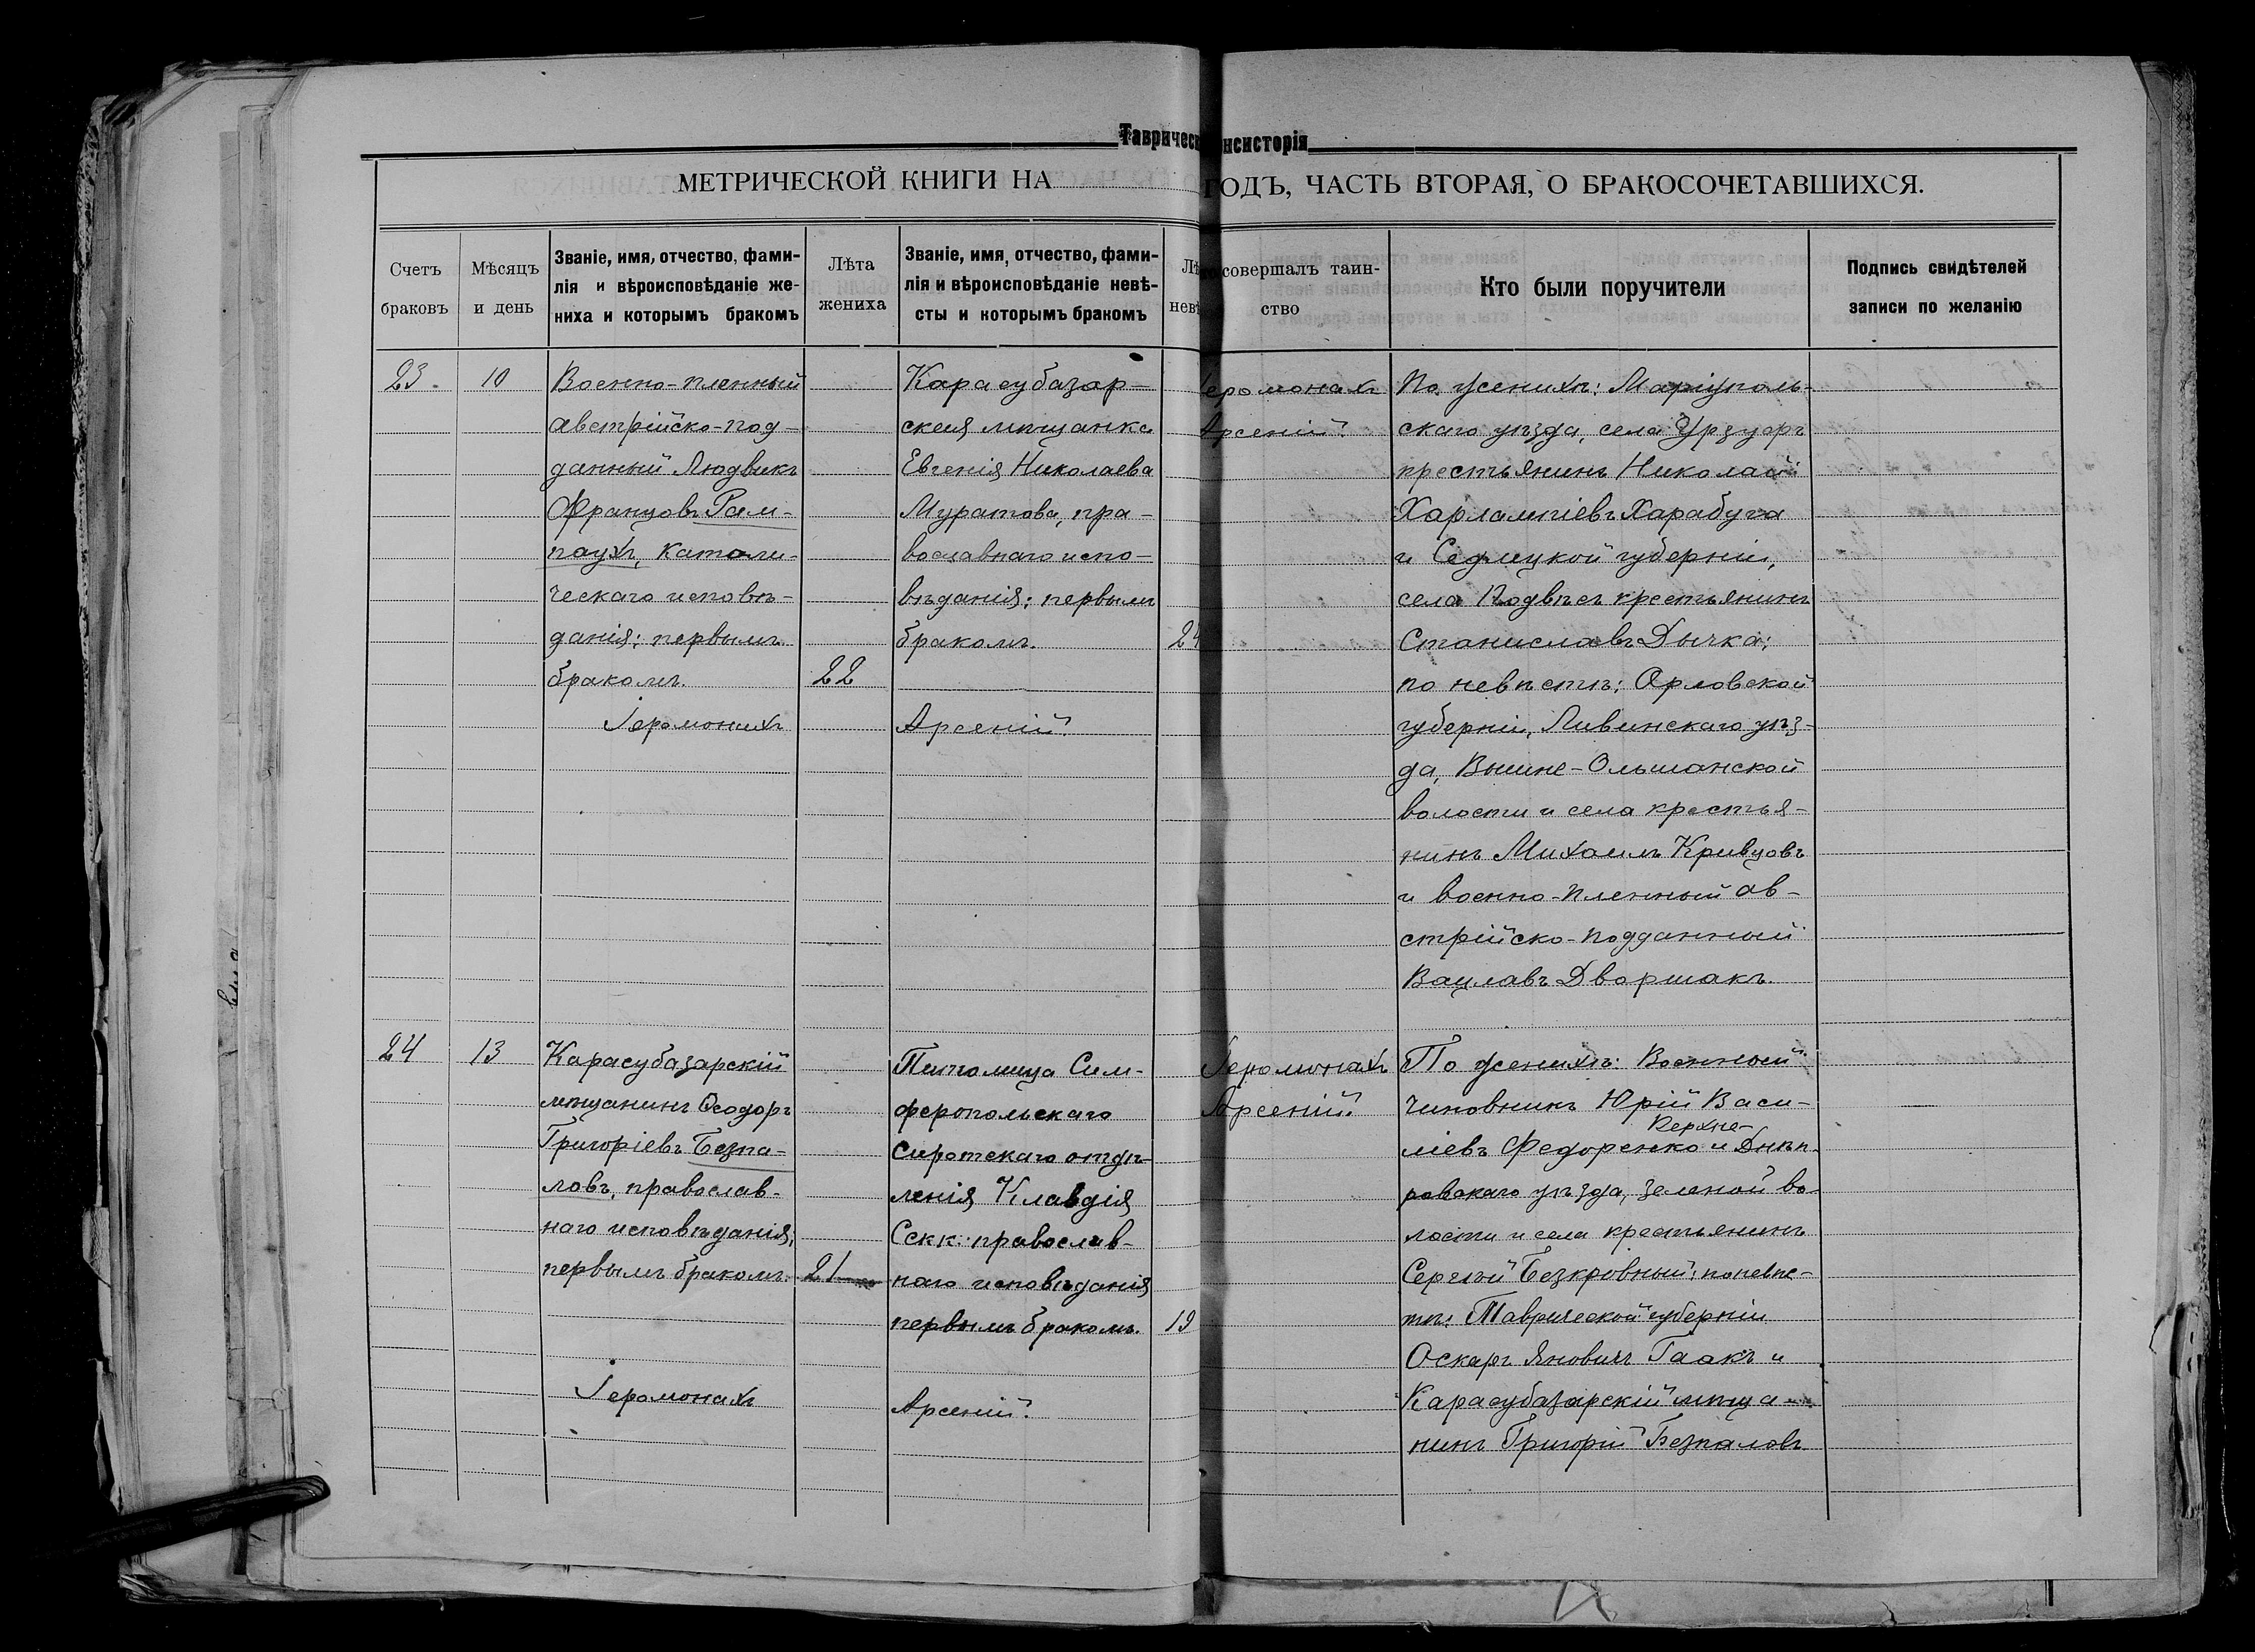 Таврическ нсисторія
МЕТРИЧЕСКОЙ КНИГИ НА ГОДЪ, ЧАСТЬ ВТОРАЯ, О БРАКОСОЧЕТАВШИХСЯ.
Счетъ
браковъ
Мѣсяцъ
и день
Званіе, имя, отчество, фами-
лія и вѣроисповѣданіе же-
ниха и которымъ бракомъ
Лѣта
жениха
Званіе, имя, отчество, фами-
лія и вѣроисповѣданіе невѣ-
сты и которымъ бракомъ
Лѣ
невѣ
то совершалъ таин-
ство
Кто были поручители
Подпись свидѣтелей
записи по желанію
23.
10
Военно-пленный
австрійско-под-
данный Людвикъ
Францовъ Рам-
паухъ, католи-
ческаго исповѣ-
данія; первымъ
бракомъ.
22
Іеромонахъ
Карасубазар-
ская мѣщанка
Евгенія Николаева
Муратова, пра-
вославнаго испо-
вѣданія; первымъ
бракомъ.
24
Арсеній.
Іеромонахъ
Арсеній.
По женихѣ: Маріуполь-
скаго уѣзда, села Урзуфъ
крестьянинъ Николай
Харлампіевъ Харабуга
и Седлецкой губерніи,
села Подвѣсъ крестьянинъ
Станиславъ Дычка;
по невѣстѣ: Орловской
губерніи, Ливинскаго уѣз-
да, Вышне-Ольшанской
волости и села крестья-
нинъ Михаилъ Кривцовъ
и военно-пленный ав-
стрійско-подданный
Вацлавъ Дворшакъ.
24
13
Карасубазарскій
мѣщанинъ Ѳеодоръ
Григоріевъ Безпа-
ловъ, православ-
наго исповѣданія;
первымъ бракомъ.
21
Іеромонахъ
Питомица Сим-
феропольскаго
Сиротскаго отдѣ-
ленія Клавдія
Секк: православ-
наго исповѣданія
первымъ бракомъ.
19
Арсеній.
Іеромонахъ
Арсеній.
По женихѣ: Военный
чиновникъ Юрій Васи-
Верхне-
ліевъ Федоренко и Днѣп-
ровскаго уѣзда, Зеленой во-
лости и села крестьянинъ
Сергѣй Безкровный; по невѣс-
тѣ: Таврической губерніи
Оскаръ Яновичъ Гаакъ и
Карасубазарскій мѣща-
нинъ Григорій Безпаловъ